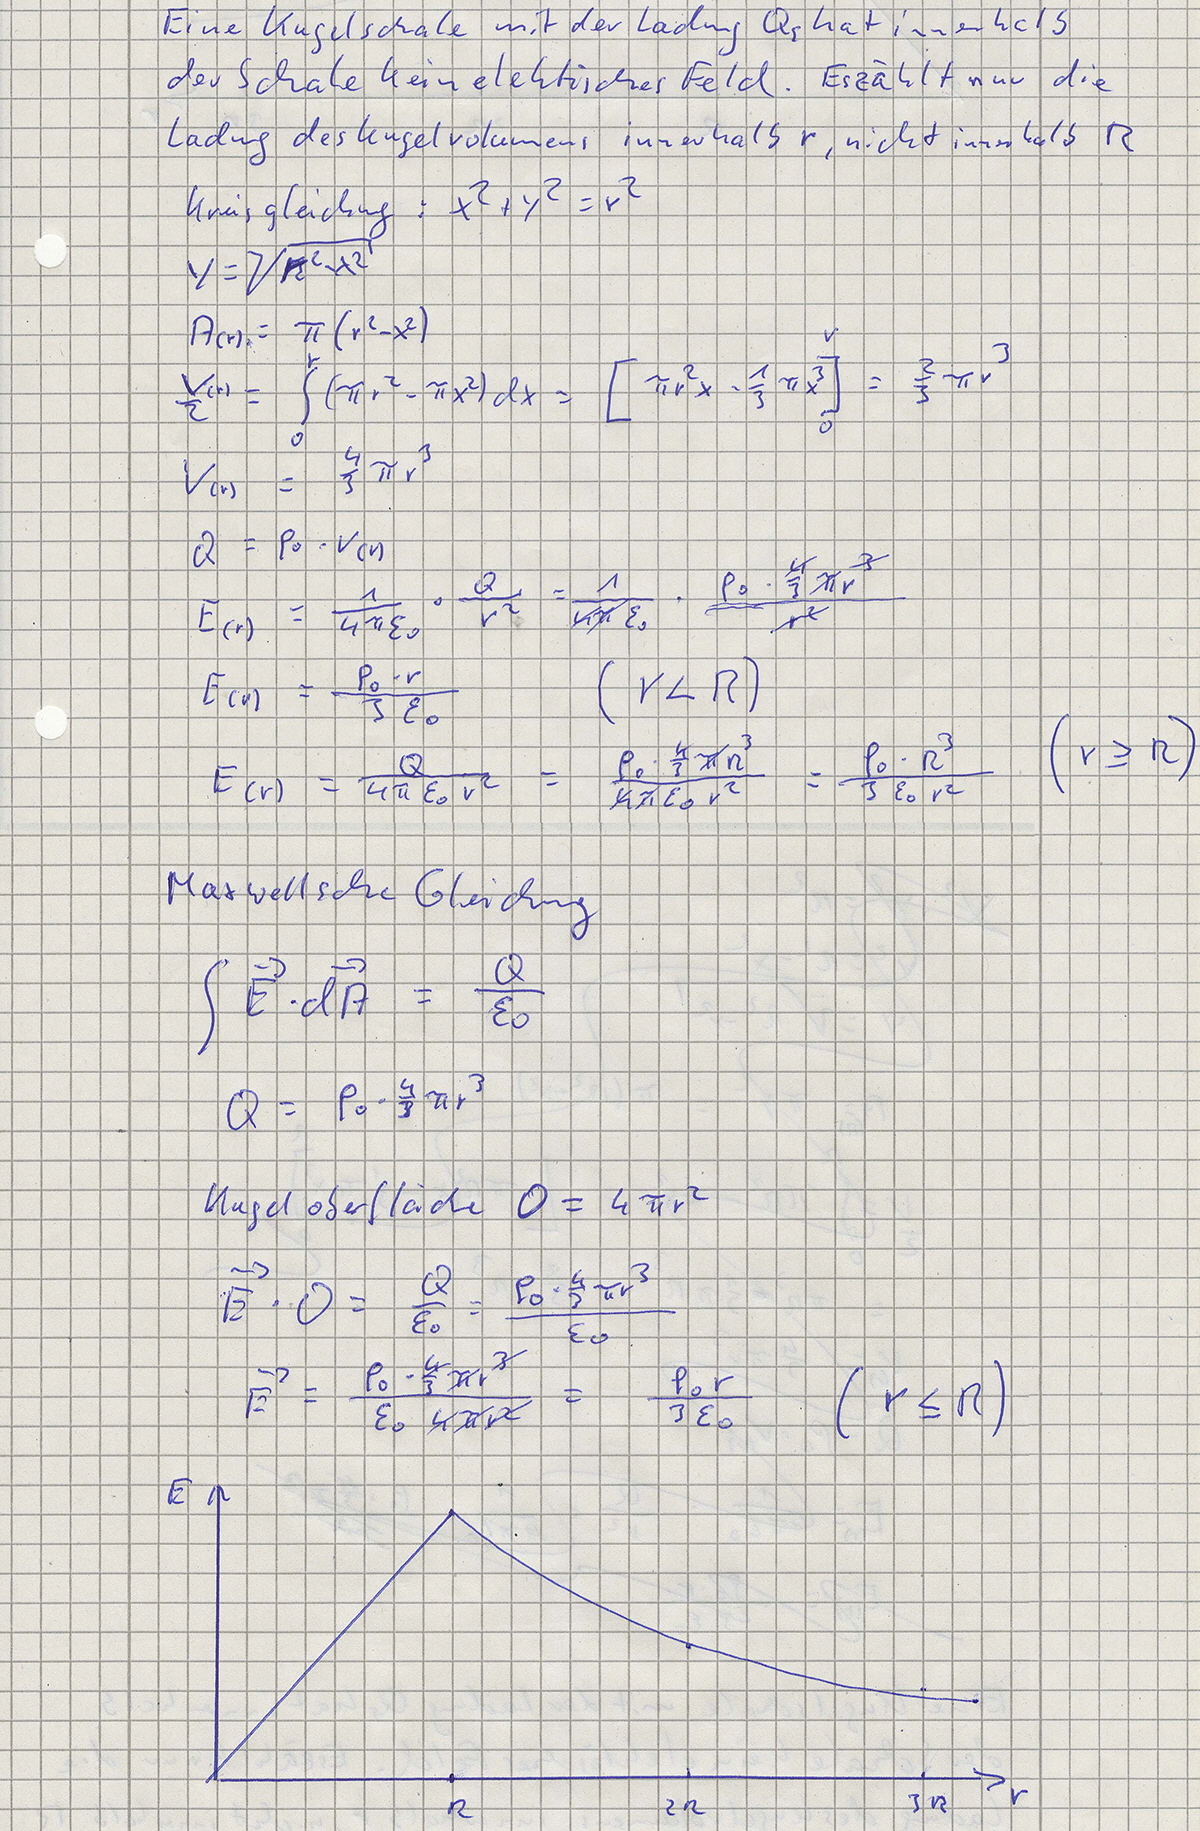 Eine Kugelschale mit der Ladung Qs hat innerhalb
der Schale kein elektisches Feld. Es zählt nur die
Ladung des Kugelvolumens innerhalb r, nicht innerhalb R
Kreisgleichung : x² + y² = r²
y = √(r² - x²)
A(r) = π (r² - x²)
V(r)/2 = ∫₀ʳ (πr² - πx²) dx = [πr²x - 1/3 πx³]₀ʳ = 2/3 πr³
V(r) = 4/3 π r³
Q = ρ₀ · V(r)
E(r) = 1/(4πε₀) · Q/r² = 1/(4πε₀) · (ρ₀ · 4/3 πr³)/r²
E(r) = (ρ₀ · r)/(3 ε₀) (r < R)
E(r) = Q/(4π ε₀ r²) = (ρ₀ · 4/3 πR³)/(4π ε₀ r²) = (ρ₀ · R³)/(3 ε₀ r²) (r ≥ R)
Maxwellsche Gleichung
∫ E⃗ · dA⃗ = Q/ε₀
Q = ρ₀ · 4/3 πr³
Kugeloberfläche O = 4πr²
E⃗ · O = Q/ε₀ = (ρ₀ · 4/3 πr³)/ε₀
E⃗ = (ρ₀ · 4/3 πr³)/(ε₀ 4πr²) = (ρ₀ r)/(3 ε₀) (r ≤ R)
E
R 2R 3R r